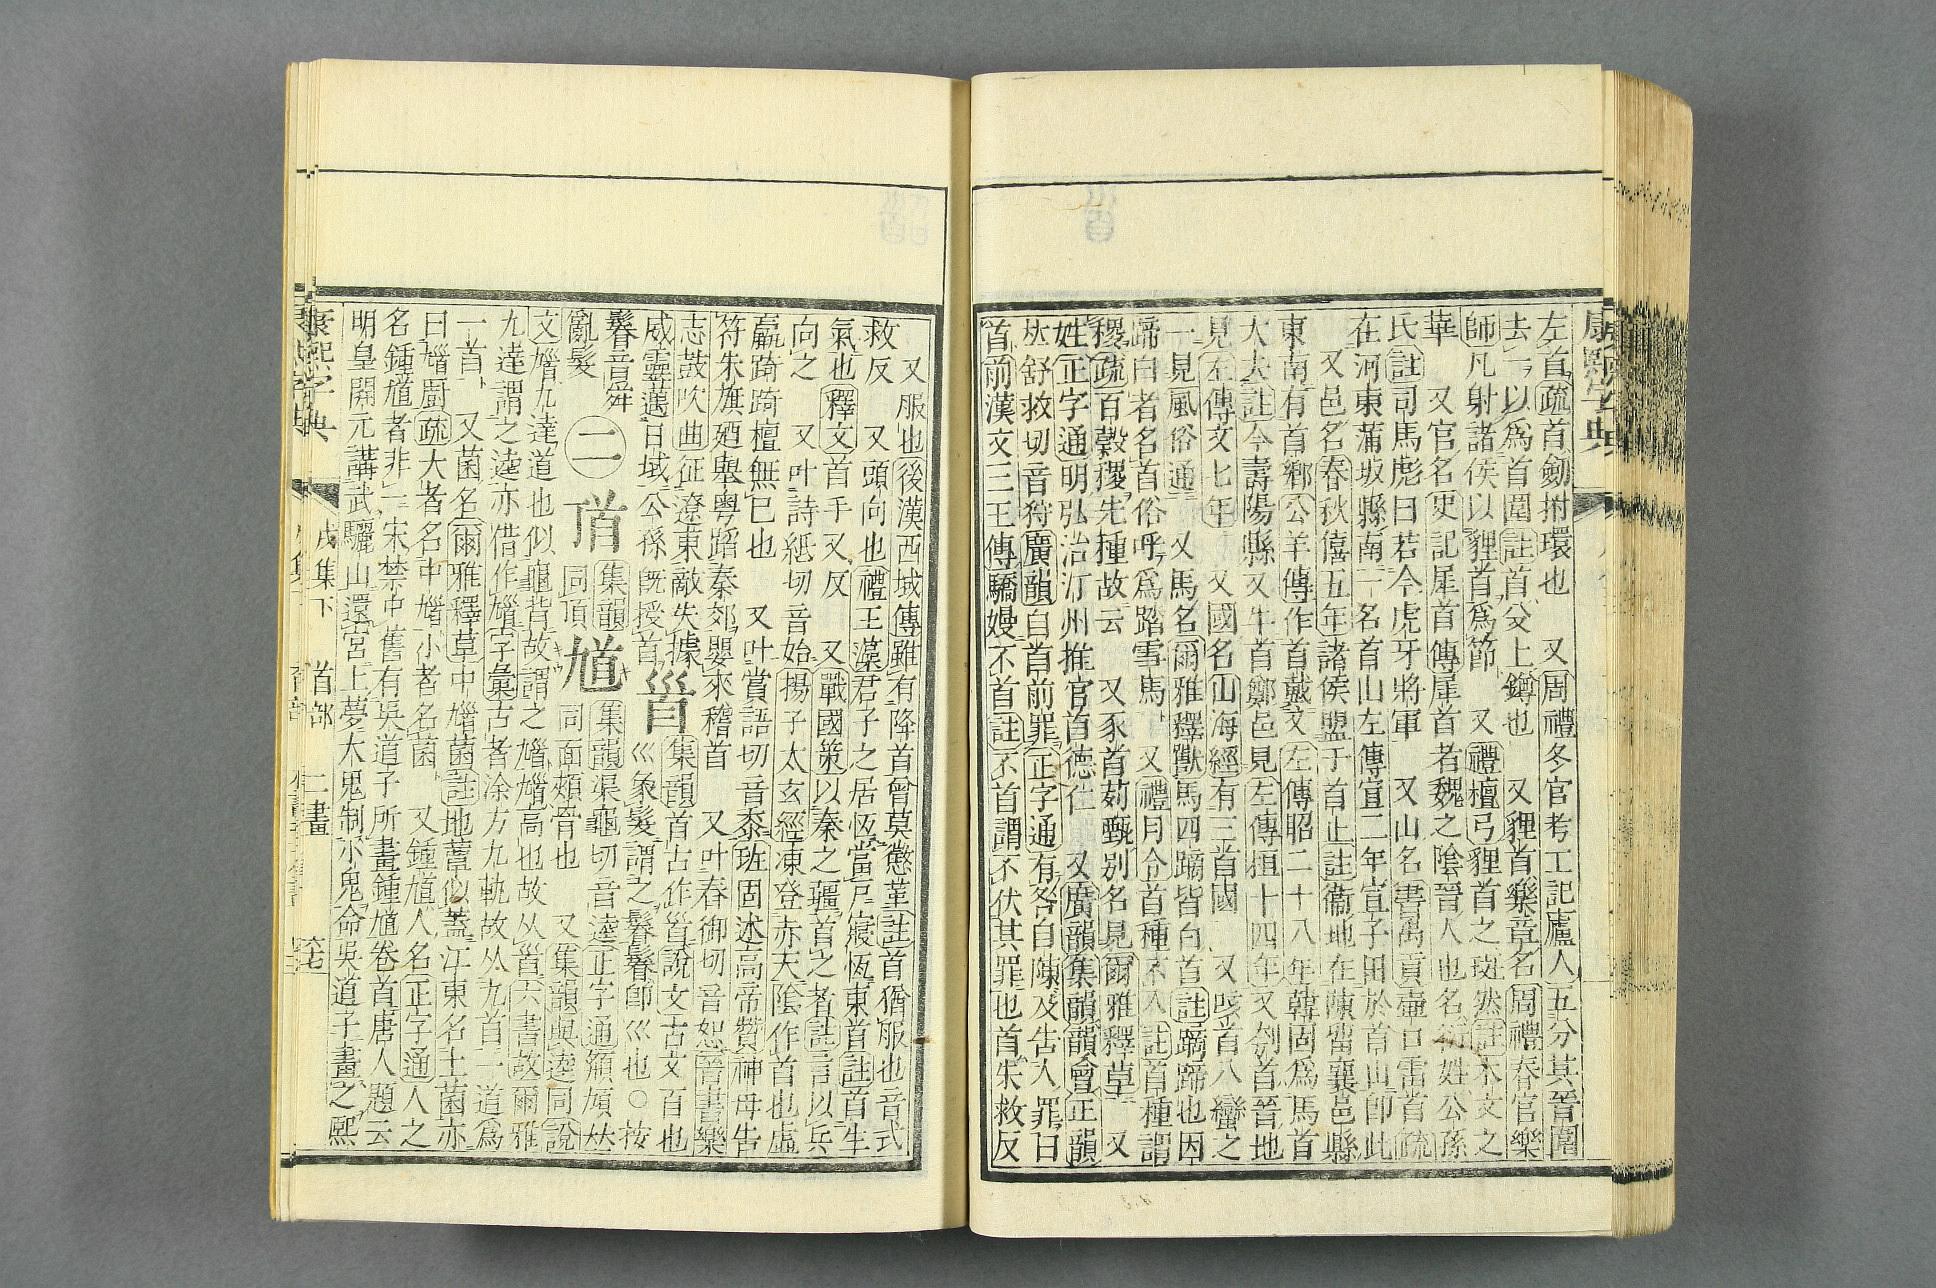 康熙字典
左首疏首劒拊環也　又周禮冬官考工記廬人五分其晉圍
去一以爲首圍註首殳上鐏也　又貍首樂章名周禮春官樂
師凡射諸侯以貍首爲節　又禮檀弓貍首之斑然註木文之
華　又官名史記犀首傳犀首者魏之陰晉人也名衍姓公孫
氏註司馬彪曰若今虎牙將軍　又山名書禹貢壺口雷首疏
在河東蒲坂縣南一名首山左傳宣二年宣子田於首山卽此
又邑名春秋僖五年諸侯盟于首止註衞地在陳留襄邑縣
東南有首鄕公羊傳作首戴又左傳昭二十八年韓固爲馬首
大夫註今壽陽縣又牛首鄭邑見左傳桓十四年又刳首晉地
見左傳文七年　又國名山海經有三首國　又咳首八蠻之
一見風俗通　又馬名爾雅釋獸馬四蹢皆白首註蹢蹄也因
蹄白者名首俗呼爲踏雪馬　又禮月令首種不入註首種謂
稷疏百穀稷先種故云　又豕首茢甄別名見爾雅釋草　又
姓正字通明弘治汀州推官首德仁　又廣韻集韻韻會正韻
𠀤舒救切音狩廣韻自首前罪正字通有咎自陳及告人罪曰
首前漢文三王傳驕嫚不首註不首謂不伏其罪也首失救反
又服也後漢西域傳雖有降首曾莫懲革註首猶服也音式
救反　又頭向也禮玉藻君子之居恆當戸寢恆東首註首生
氣也釋文首手又反　又戰國策以秦之疆首之者註言以兵
向之　又叶詩紙切音始揚子太玄經凍登赤天陰作首也虛
羸踦踦檀無已也　又叶賞語切音黍班固述高帝贊神母告
符朱旗廼舉粵蹈秦郊嬰來稽首　又叶春御切音恕晉書樂
志鼓吹曲征遼東敵失據威靈邁日域公孫旣授首
𩠐集韻首古作𩠐說文古文百也
巛象髮謂之鬊鬊卽巛也○按
鬊音舜
亂髮　二　𩠑集韻同頂　馗集韻渠龜切音逵正字通頯頄𠀤
同面頰晉也　又集韻與逵同說
文馗九達道也似龜背故謂之馗馗高也故从𩠐六書故爾雅
九達謂之逵亦借作馗字彙古者涂方九軌故从九首一道爲
一首　又菌名爾雅釋草中馗菌註地蕈似蓋江東名土菌亦
曰馗廚疏大者名中馗小者名菌　又鍾馗人名正字通人之
名鍾馗者非一宋禁中舊有吳道子所畫鍾馗卷首唐人題云
明皇開元講武驪山還宮上夢大鬼制小鬼命吳道子畫之熙
康熙字典　戌集下　首部　二畫　六七